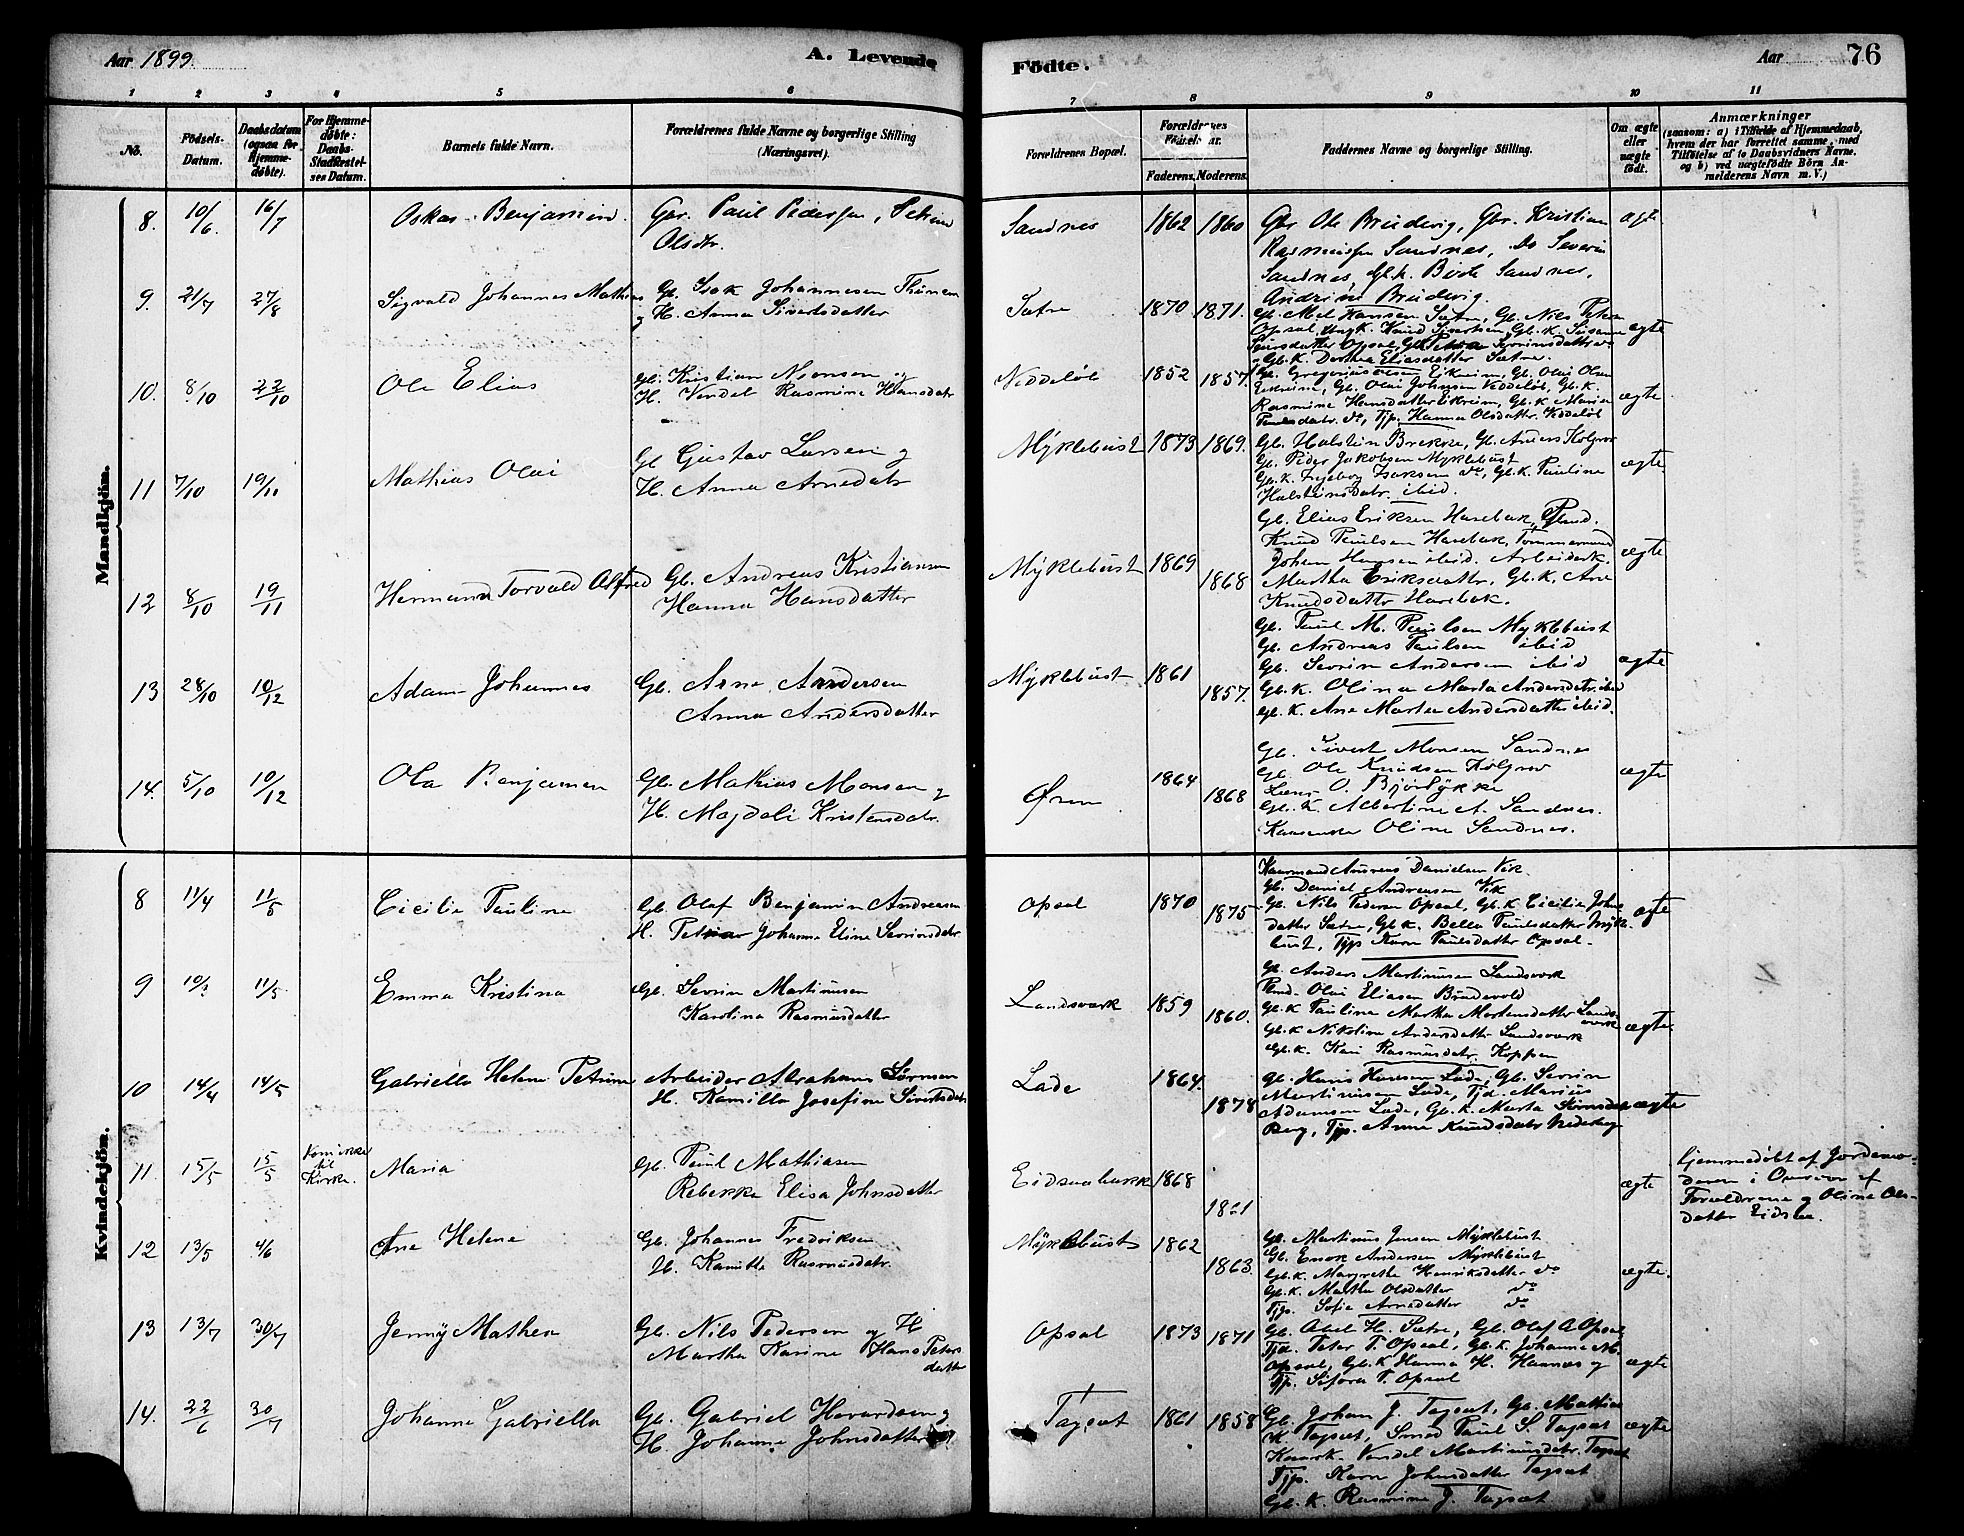 Aar 1899. A. Levende Födte. Aar 76
1 2 3 4 5 6 7 8 9 10 11
No. Födsels-Datum. Daabsdatum (ogsaa for Hjemme-döbte). For Hjemme-döbte: Daabs-Stadfæstel-ses Datum. Barnets fulde Navn. Forældrenes fulde Navne og borgerlige Stilling (Næringsvei). Forældrenes Bopæl. Forældrenes Födselsaar. Faderens. Moderens. Faddernes Navne og borgerlige Stilling. Om ægte eller uægte födt. Anmærkninger
(saasom: a) i Tilfælde af Hjemmedaab,
hvem der har forrettet samme, med
Tilföielse af to Daabsvidners Navne.
og b) ved uægtefödte Börn An-
melderens Navn m. V.)
Mandkjön.
8. 10/6. 16/7 Oskar Benjamin. Gbr. Paul Pedersen,
Olsdtr.
Sandnes 1862 1860 Gbr Ole Brudevig, Gbr. Kristian
Rasmussen Sandnes, Do Severin
Sandnes, Gl.k. Sandnes,
Brudevig.
ægte
9. 21/7 27/8 Sigvald Johannes Mathias Gb. Isak Johannesen
og H. Anna Sivertsdatter
Sætre 1870 1871. Hansen Sætre, Gb. Nils Peter
Opsal, Ungk. Knud Sivertsen, Gb.k. Susanne
Opsal, Sevrinsdatter
Gb.k. Eliasdatter Sætre.
ægte
10. 8/10 22/10 Ole Elias Gb. Kristian Monsen og
H. Vendel Rasmine Hansdatr
Veddeløb 1852 1857. Gb. Gregorius Eikrim, Gb. Olai Olsen
Eikrim, Gb. Olai Johnsen Veddeløb, Gb.k.
Rasmine Hansdatter Eikrim, Gb.k. Maria
Paulsdatr do, Tjp. Hanna Olsdattr. Veddeløb
ægte
11 7/10 19/11 Mathias Olai Gb Gustav Larsen og
H. Anna Arnedatr
Myklebust 1873 1869. Gb. Halstein Brekke, Gb. Anders Holgrov
Gb. Peder Jakobsen Myklebust
Gb.k. Ingebor Isaksen do, Gb.k. Pauline
Halsteinsdatr. ibid.
ægte
12 8/10 19/11 Hermann Torvald Alfred Gb. Andreas Kristiansen
Hanna Hansdatter
Myklebust 1869 1868 Gb. Elias Eriksen Harebak,
Knud Paulsen Harebak, Tømmermand
Johan Hansen ibid. Arbeiderk.
Martha Eriksdatter, Gb.k. Ane
Knudsdattr Harebak.
ægte
13 28/10 10/12 Adam Johannes Gb. Arne Andersen
Anna Andersdatter
Myklebust 1861 1857. Gb. Paul M. Paulsen Myklebust
Gb. Andreas Paulsen ibid
Gb. Sevrin Andersen ibid
Gb.k. Olina Marta Andersdatr. ibid
Gb.k. Ane Marta Andersdatter ibid.
ægte
14. 5/10 10/12 Ola Benjamin Gb. Mathias Monsen og
H. Magdali Kristensdatr.
Øren 1864 1868 Gb. Sivert Monsen Sandnes
Gb. Ole Knudsen Holgrov
O. Bjørlykke
Gb.k. Albertine A. Sandnes.
Oline Sandnes.
ægte
Kvindekjön.
8 11/4 11/5 Cicilie Pauline Gb. Olaf Benjamin Andreasen
H. Johanne Eline Sevrinsdatr.
Opsal 1870 1875 Kaarmand Andreas Danielsen Vik
Gb. Daniel Andreasen Vik
Gb. Nils Pedersen Opsal, Gb.k. Cicilie Johns
datter Sætre, Gb.k. Bella Paulsdatter Mykle
bust, Tjp Karn Paulsdatter Opsal.
ægte
9 11/5 Emma Kristina Gb. Sevrin Martinusen
Karolina Rasmusdatter
Landsverk 1859 1860. Gb. Anders Martinusen Landsverk
Olai Eliasen Brudevold
Gb.k Paulina Martha Mortensdatter Lands-
verk
Gb.k Nikoline Andersdatter Landsverk
Gb.k. Kari Rasmusdatr. Koppen
ægte
10 14/4 14/5 Gabriella Helene Petrine Arbeider Abraham Sørensen
H. Kamilla Josefine Sivertsdatr
Lade 1864. 1874 Gb. Hans Hansen Lade, Gb. Sevrin
Martinusen Lade, Tjd. Marius
Adamsen Lade, Gb.k. Marta
Berg, Tjp. Anna Knudsdatr
ægte
11. 15/5 15/5 Kom ikke
til
Kirke. Maria Gb. Paul Mathiasen
Rebekka Elisa Johnsdatter
Eidsaabakk 1868 ægte hjemmedøbt af Jordemo-
deren i Overvær af
Forældrene og Oline Ols-
datter Eidsaa.
12 13/5 4/6 Ane Helene Gb. Johannes Fredriksen
H. Kamilla Rasmusdatr.
Myklebust 1862 1863. Gb. Martinus Jensen Myklebust
Gb. Enok Andersen Myklebust
Gb.k. Margrethe Henriksdatter do
Gb.k. Martha Olsdatter do
Tjp. Sofie Arnedatter do
ægte.
13 13/7 30/7 Jenny Mathea Gb. Nils Pedersen og H
Martha Karine Hans Peters
datter
Opsal 1873 1871 Gb. Abel H. Sætre, Gb. Olaf A Opsal
Tjd. Peter P. Opsal, Gb.k. Johanne M.
Opsal, Gb.k Hanna H. Hannes og
Tjp. Sifora P. Opsal
ægte
14. 22/6 30/7 Johanna Gabriella Gb. Gabriel Havardsen og
H. Johanna Johnsdatter
Tagsæt 1861 1858 Gb. Johan J. Tagsæt, Gb. Mathias
K. Tagsæt, Smed Paul S. Tagsæt
Kaark. Vendel Martinusdatr. Tagsæt
Tjp. Karn Johnsdatter Tagsæt
Gb.k. Rasmine J. Tagsæt
ægte